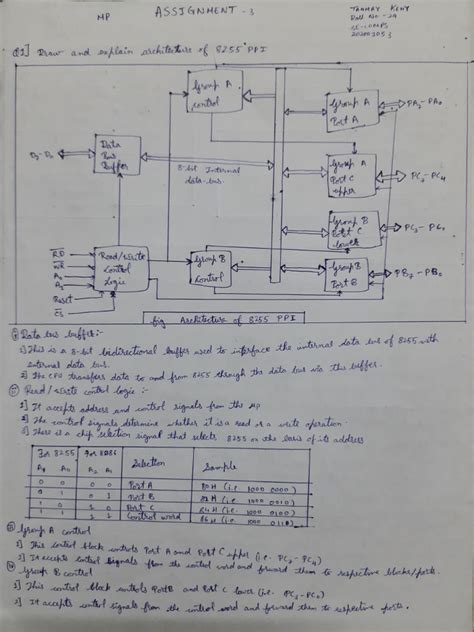 MP
ASSIGNMENT - 3
TANMAY
Roll No - 24
Q1] Draw and explain architecture of 8255 PPI
Group A
control
Group A
Port A
PA7 - PA0
D7 - D0
Data
Bus
Buffer
8-bit Internal
data-bus
Group A
Port C
upper
PC7 - PC4
Group B
Port C
lower
PC3 - PC0
RD
WR
A0
A1
Reset
CS
Read/Write
Control
Logic
Group B
Control
Group B
Port B
PB7 - PB0
fig Architecture of 8255 PPI
Data bus buffer:-
1] This is a 8-bit bidirectional buffer used to interface the internal data bus of 8255 with
external data bus.
2] The CPU transfers data to and from 8255 through the data bus via this buffer.
Read / Write control logic :-
1] It accepts address and control signals from the µP
2] The control signals determine whether it is a read or a write operation
3] There is a chip selection signal that selects 8255 on the basis of its address
For 8255 For 8086 Selection Sample
A1 A0 A2 A1
0 0 0 0 Port A 80H (i.e 1000 0000)
0 1 0 1 Port B 82H (i.e 1000 0010)
1 0 1 0 Port C 84H (i.e 1000 0100)
1 1 1 1 Control word 86H (i.e 1000 0110)
Group A control
1] This control block controls Port A and Port C upper (i.e. PC7 - PC4)
2] It accepts control signals from the control word and forward them to respective blocks/ports.
Group B control
1] This control block controls Port B and Port C lower (i.e. PC3 - PC0)
2] It accepts control signals from the control word and forward them to respective ports.